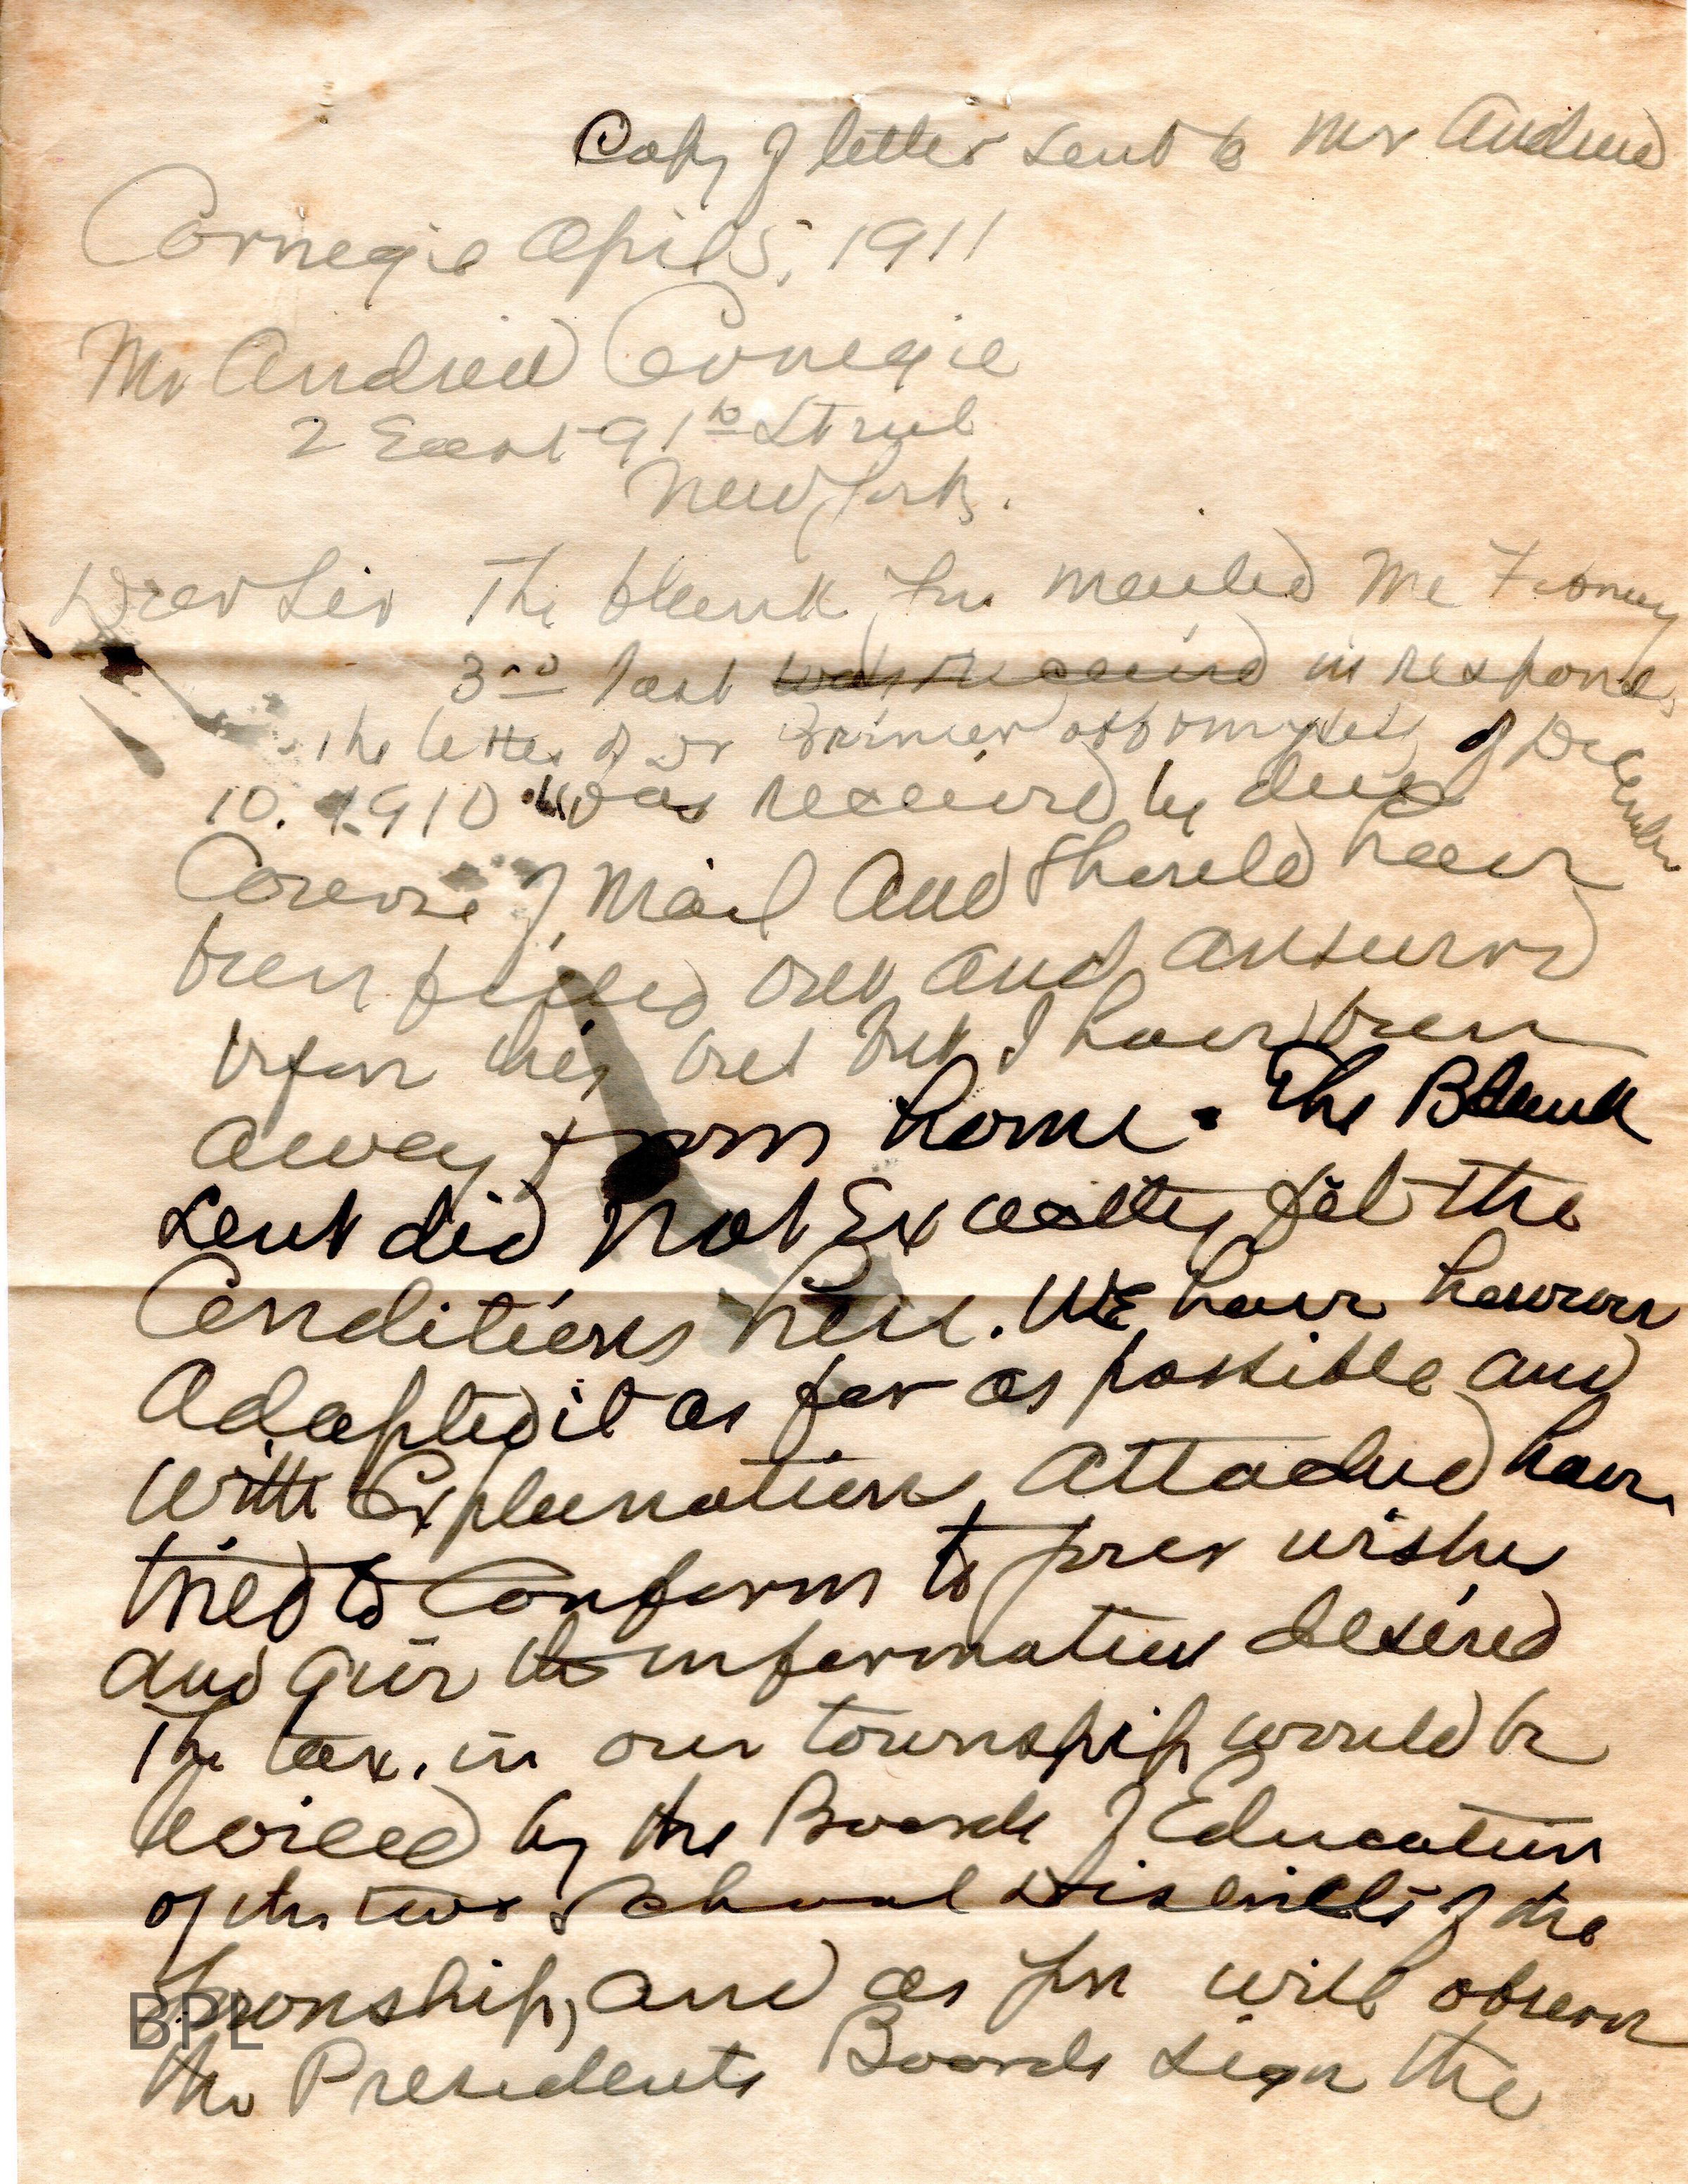 Copy of letter sent to Mr Andrew
Carnegie April 5, 1911
Mr Andrew Carnegie
2 East 91st Street
New York.
Dear Sir The blank you mailed me February
3rd last was received in response
the letter of Dr of December
10. 1910 was received by due
Course of Mail and should have
been filled out and answered
before this but I have been
away from home. The Blank
sent did not Exactly fit the
Conditions here. WE have however
Adapted it as far as possible and
with Explanation attached have
tried to Conform to your wishes
and give the information desired
The tax. in our township would be
levied by the Boards of Education
of the two School Districts of the
township, and as you will observe
the Presidents Boards sign the
BPL